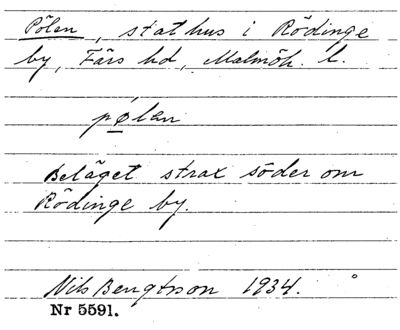 Pölen, stathus i Rödinge
by, Färs hd, Malmöh. l.
pølen
Beläget strax söder om
Rödinge by.
Nils Bengtsson 1934.
Nr 5591.